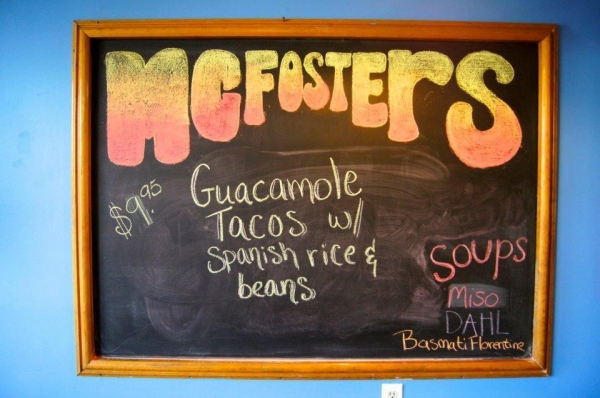 McFOSTERS
$9.95
Guacamole
Tacos w/
Spanish rice &
beans
Soups
Miso
DAHL
Basmati Florentine